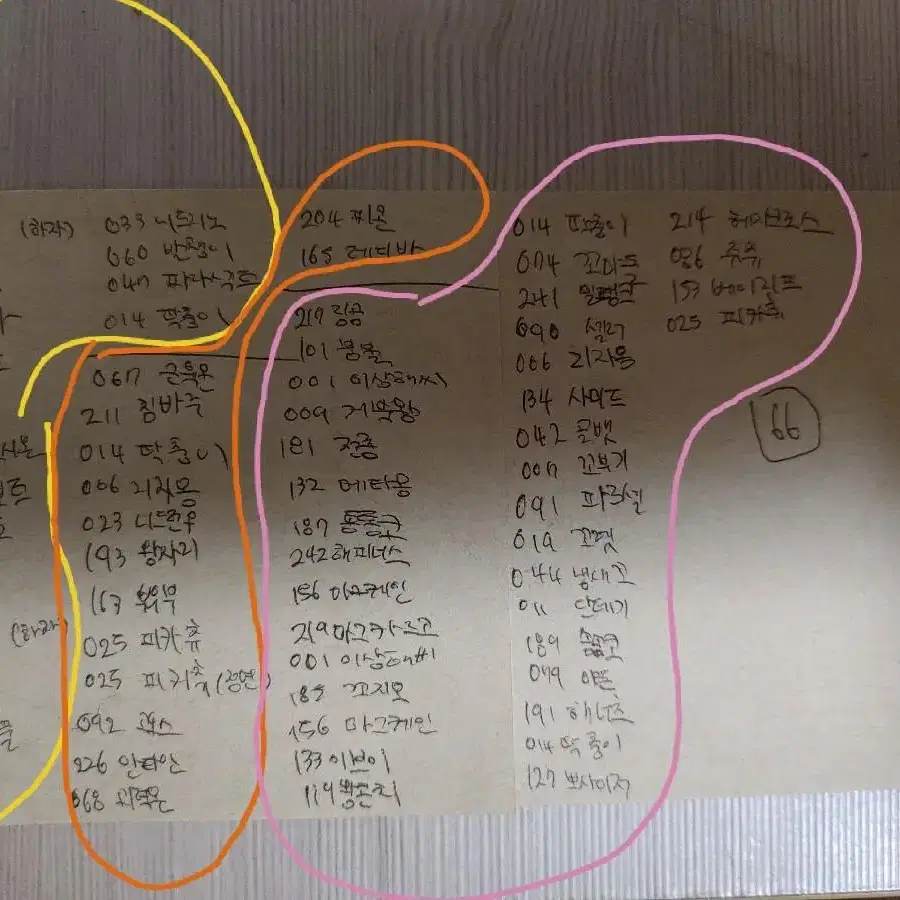 (하자) 033 니드리노
060 발챙이
047 파라섹트
014 딱충이
067 근육몬
211 침바루
014 딱충이
006 리자몽
023
193 왕자리
163 부우부
(하자)
025 피카츄
025 피카츄(정면)
092 고오스
226 만타인
068 괴력몬
204 피콘
165 레디바
219
101 붐볼
001 이상해씨
009 거북왕
181 전룡
132 메타몽
187 통통코
242 해피너스
156 마그케인
219 마그카르고
001 이상해씨
185 꼬지모
156 마그케인
133 이브이
119 왕콘치
014 딱충이
074 꼬마돌
241 밀탱크
090 셀러
006 리자몽
134 샤미드
042 골뱃
007 꼬부기
091 파르셀
019 꼬렛
044 냄새꼬
011 단데기
189 솜솜코
079 야돈
191 해너츠
014 딱충이
127 쁘사이저
214 헤라크로스
086 쥬쥬
153 베이리프
025 피카츄
66